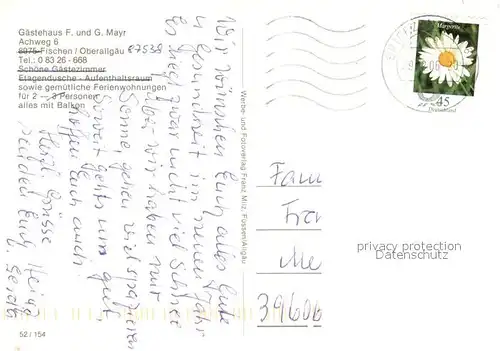 Gästehaus F. und G. Mayr
Achweg 6
8975 Fischen / Oberallgäu 87538
Tel.: 0 83 26 - 668
Schöne Gästezimmer
Etagendusche - Aufenthaltsraum
sowie gemütliche Ferienwohnungen
für 2 — 3 Personen
alles mit Balkon
Wir wünschen Euch alles Gute
u Gesundheit im neuen Jahr
Es liegt zwar nicht viel Schnee
aber wir haben mit
Sonne, gehen viel spazieren
Soweit gehts uns gut
hoffen Euch auch
Herzl. Grüsse
senden Euch Heinz
u. Gerda
52 / 154
Werbe- und Fotoverlag Franz Milz, Füssen/Allgäu
Margerite
45
Deutschland
Fam
Me
39606
privacy protection
Datenschutz